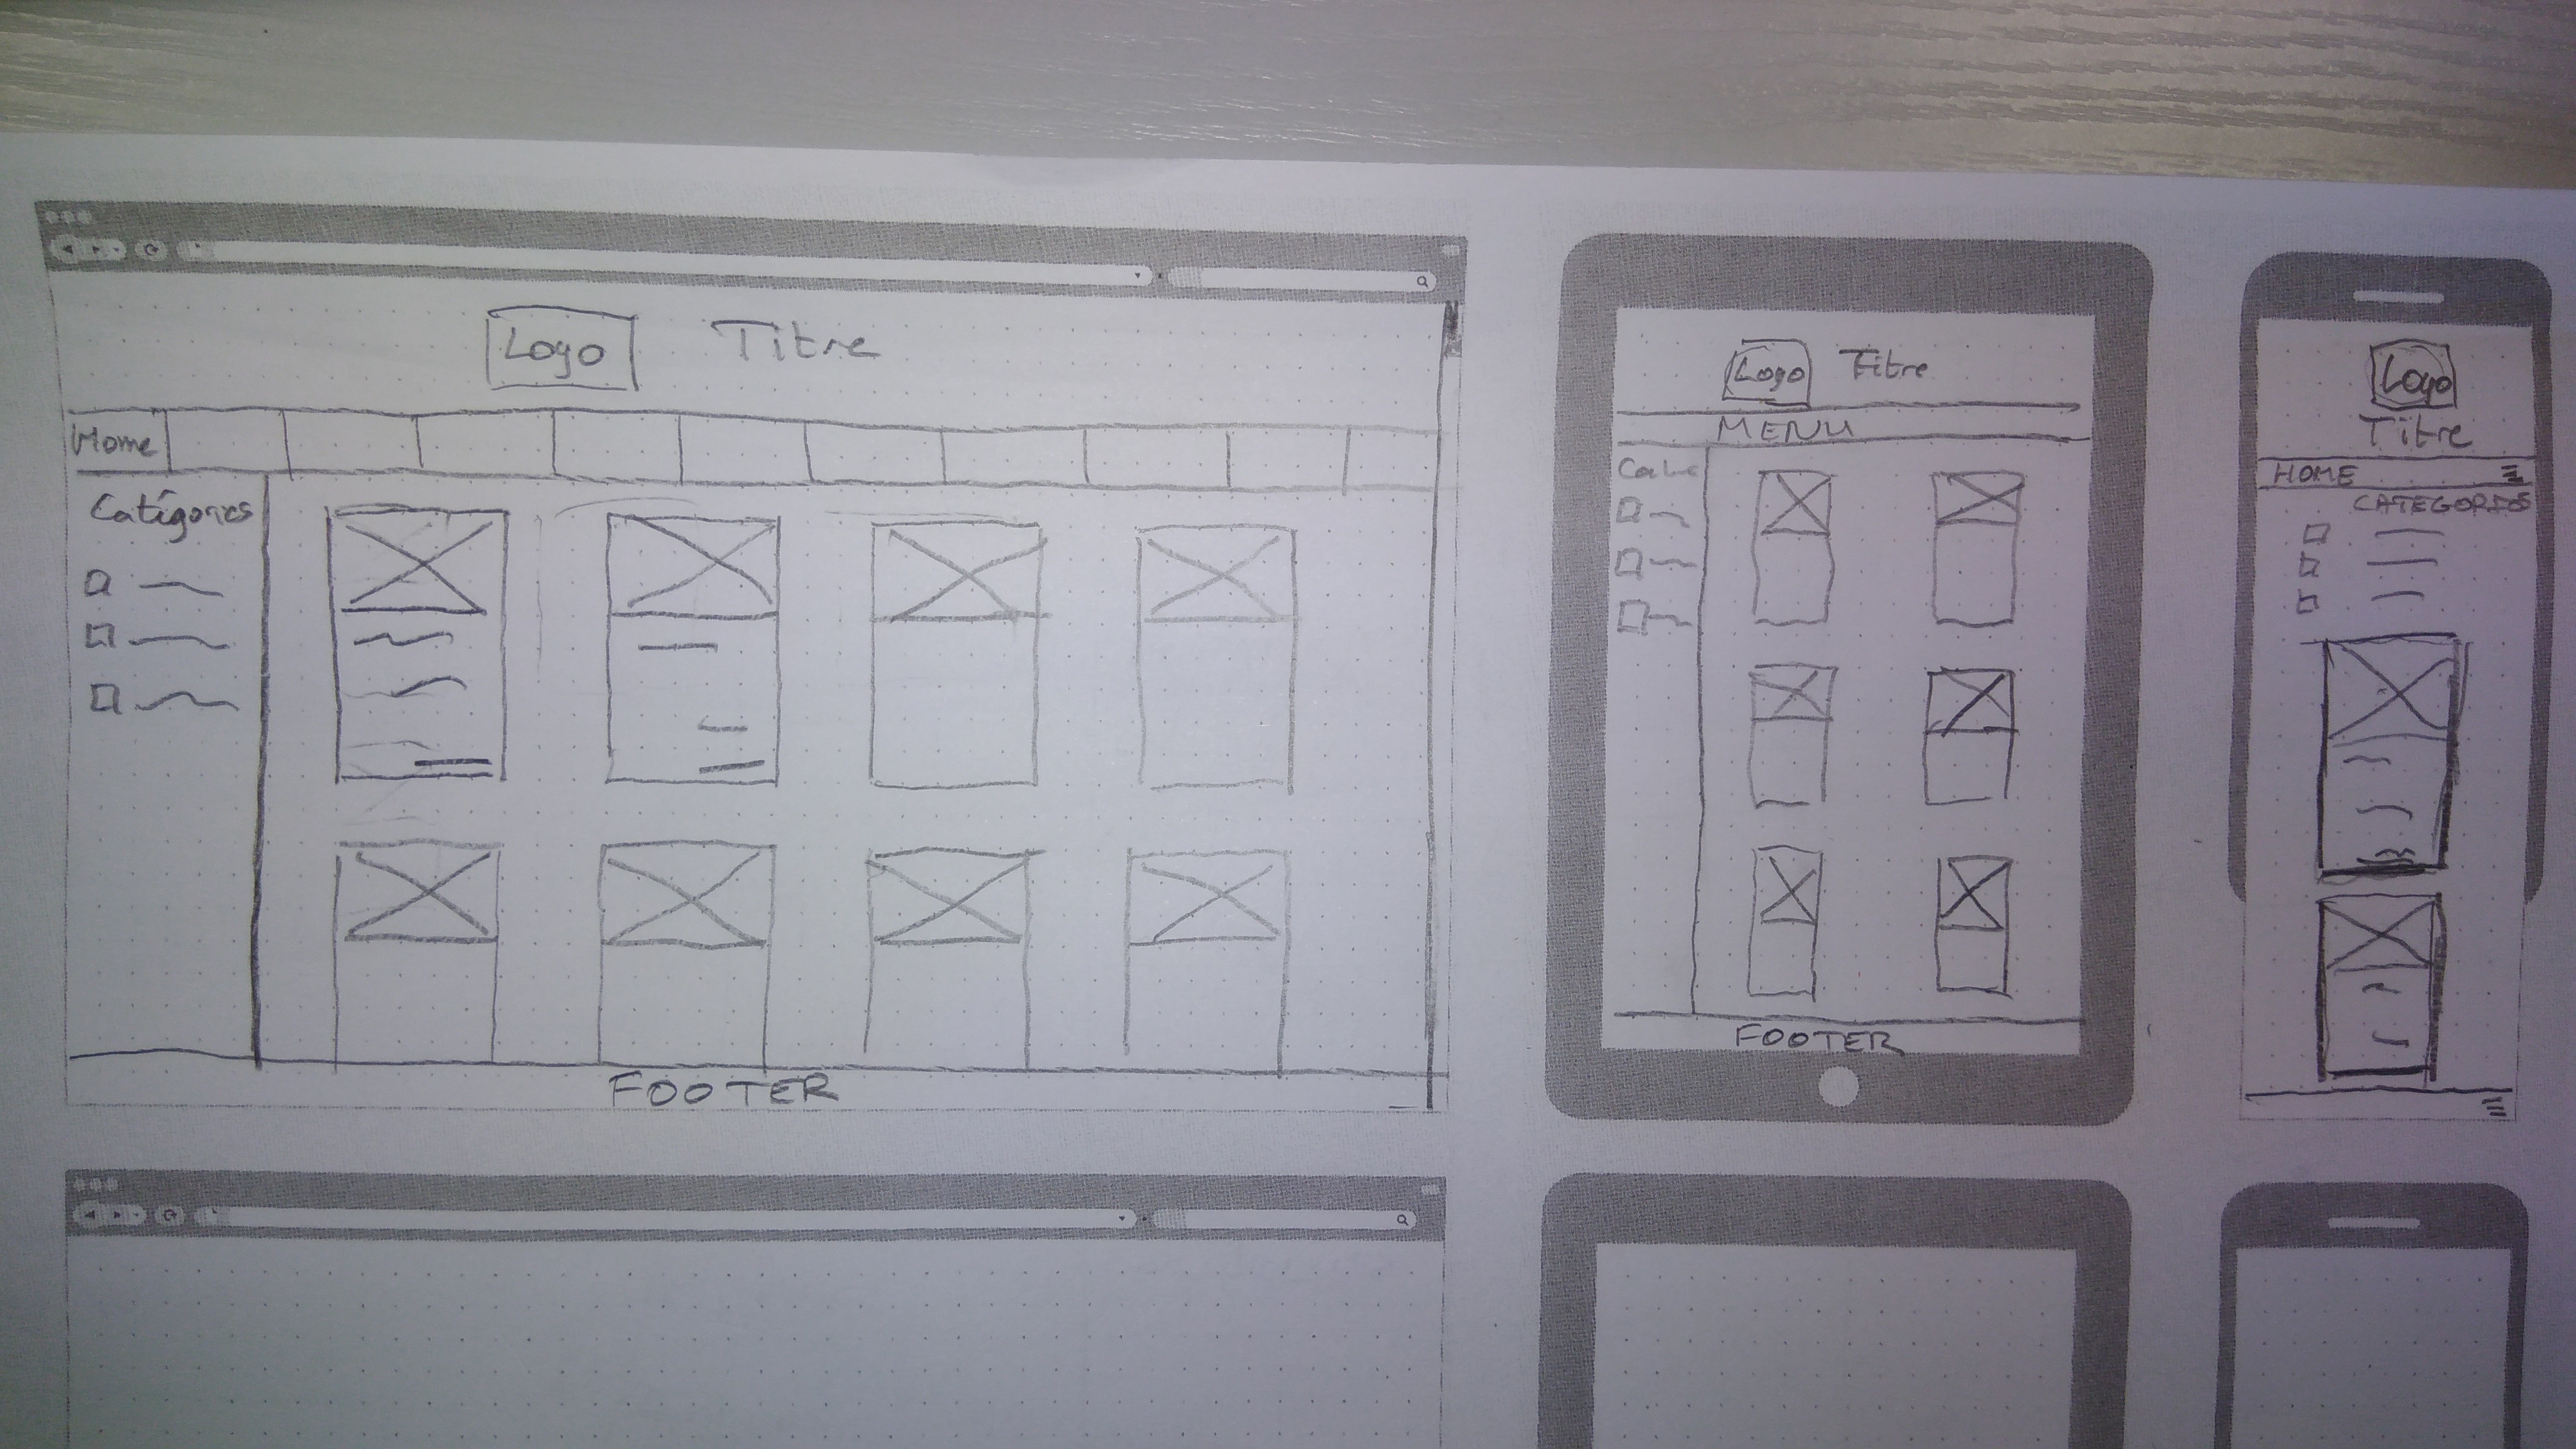 Logo Titre
Home
Catégories
FOOTER
Logo Titre
MENU
FOOTER
Logo
Titre
HOME
CATEGORIES